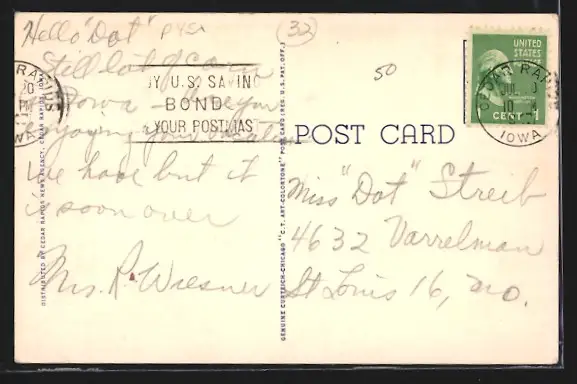 Hello "Dot"
Still lot of corn
in Iowa - Are you
enjoying your vacation
We have but it
is soon over
Mrs. R. Wiesner
P45A
32
50
CEDAR RAPIDS
IOWA
BUY U.S. SAVINGS
BONDS
YOUR POSTMASTER
POST CARD
UNITED
STATES
CENT 1
CEDAR RAPIDS
JUL
10
IOWA
Miss "Dot" Streib
4632 Varrelman
St Louis 16, Mo.
DISTRIBUTED BY CEDAR RAPIDS NEWS AGENCY, CEDAR RAPIDS, IOWA
GENUINE CURTEICH-CHICAGO "C.T. ART-COLORTONE" POST CARD (REG. U.S. PAT. OFF.)